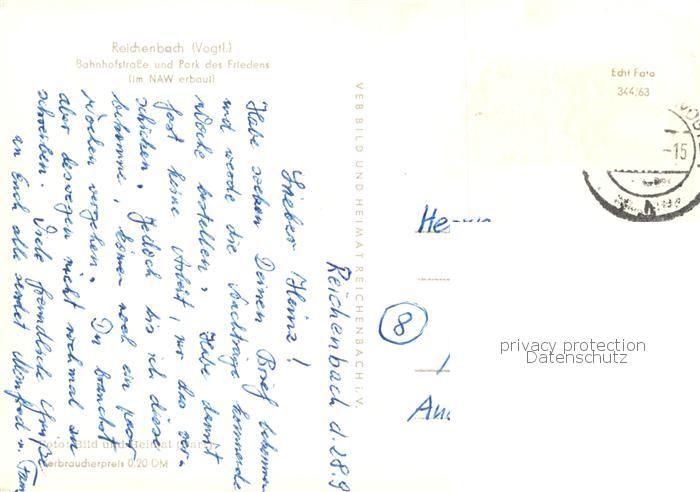 Reichenbach (Vogtl.)
Bahnhofstraße und Park des Friedens
(im NAW erbaut)
Echt Foto
344/63
VEB BILD UND HEIMAT REICHENBACH i. V.
-15
Reichenbach d. 28.9
Lieber Heinz!
Habe soeben Deinen Brief bekommen
und werde die Nachträge kommende
Woche bestellen. Habe damit
fast keine Arbeit, nur das ver-
schicken. Jedoch bis ich diese
bekomme, können noch ein paar
Wochen vergehen. Du brauchst
aber deswegen nicht nochmal zu
schreiben. Viele freundliche Grüße
an Euch alle sendet Manfred u. Fam
8
privacy protection
Datenschutz
Foto: Bild und Heimat
Verbraucherpreis 0,20 DM